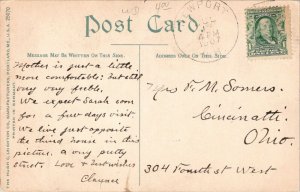 Post Card
MESSAGE MAY BE WRITTEN ON THIS SIDE.
ADDRESS ONLY ON THIS SIDE.
Mother is just a little
more comfortable; but still
very very feeble.
We expect Sarah
for a few days visit
We live just opposite
the third house in this
picture, a very pretty
street. Love + best wishes
Mrs F. M. Somers.
Cincinatti
Ohio.
304 Fourth St West